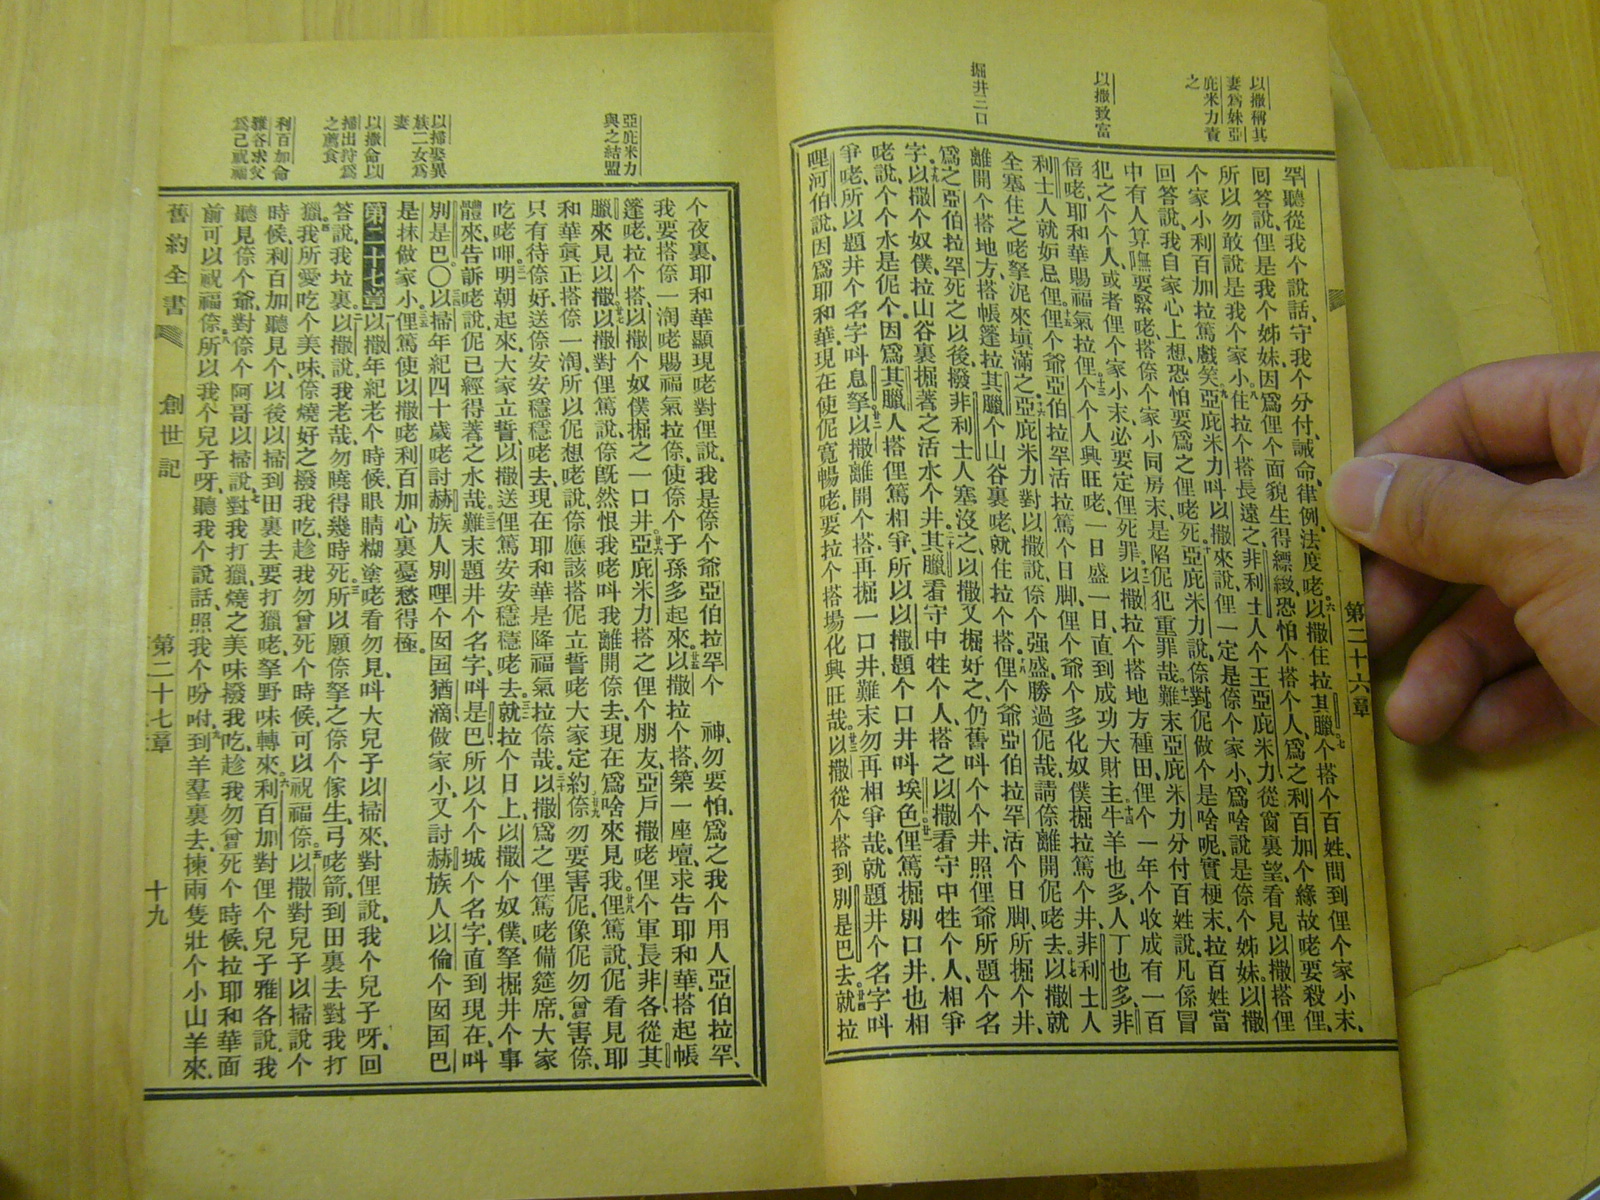 以撒稱其
妻爲妹亞
庇米力責
之
以撒致富
掘井三口
第二十六章
罕聽從我个說話、守我个分付、誡命、律例、法度咾、六以撒住拉其臘、七个搭个百姓、問到俚个家小末、
囘答說、俚是我个姊妹、因爲俚个面貌生得縹緻、恐怕个搭个人、爲之利百加个緣故咾要殺俚、
所以勿敢說是我个家小、八住拉个搭長遠之、非利士人个王亞庇米力、從窗裏望、看見以撒搭俚
个家小利百加拉篤戲笑、九亞庇米力呌以撒來說、俚一定是㑚个家小、爲啥說是㑚个姊妹、以撒
回答說、我自家心上想、恐怕要爲之俚咾死、十亞庇米力說、㑚對伲做个是啥呢、實梗末、拉百姓當
中有人算無要緊咾、搭㑚个家小同房末、是陷伲犯重罪哉、十一難末亞庇米力分付百姓說、凡係冒
犯之个个人、或者俚个家小末、必要定俚死罪、十二以撒拉个搭地方種田、俚个一年个收成有一百
倍咾、耶和華賜福氣拉俚、十三个个人興旺咾、一日盛一日、直到成功大財主、十四牛羊也多、人丁也多、非
利士人就妒忌俚、十五俚个爺亞伯拉罕活拉篤个日脚、俚个爺个多化奴僕掘拉篤个井、非利士人
全塞住之咾、拏泥來塡滿之、十六亞庇米力對以撒說、㑚个强盛、勝過伲哉、請㑚離開伲咾去、十七以撒就
離開个搭地方、搭帳篷拉其臘个山谷裏咾、就住拉个搭、十八俚个爺亞伯拉罕活个日脚、所掘个井、
爲之亞伯拉罕死之以後、撥非利士人塞沒之、以撒又掘好之、仍舊呌个个井、照俚爺所題个名
字、十九以撒个奴僕、拉山谷裏掘著之活水个井、二十其臘看守中牲个人、搭之以撒看守中牲个人、相爭
咾說、个个水是伲个、因爲其臘人搭俚篤相爭、所以以撒題个口井呌埃色、廿一俚篤掘別口井也相
爭咾、所以題井个名字呌息拏、廿二以撒離開个搭、再掘一口井、難末勿再相爭哉、就題井个名字呌
哩河伯說、因爲耶和華、現在使伲寬暢咾、要拉个搭塲化興旺哉、廿三以撒從个搭到別是巴去、廿四就拉
亞庇米力
與之結盟
以掃娶異
族二女爲
妻
以撒命以
掃出狩爲
之薦食
利百加命
雅各求父
爲己祝福
个夜裏、耶和華顯現咾對俚說、我是㑚个爺亞伯拉罕个　神、勿要怕、爲之我个用人亞伯拉罕、
我要搭㑚一淘咾賜福氣拉㑚、使㑚个子孫多起來、廿五以撒拉个搭、築一座壇、求告耶和華、搭起帳
篷咾、拉个搭、以撒个奴僕掘之一口井、廿六亞庇米力搭之俚个朋友、亞戶撒咾俚个軍長非各、從其
臘來見以撒、廿七以撒對俚篤說、㑚旣然恨我咾呌我離開㑚去、現在爲啥來見我、廿八俚篤說、伲看見耶
和華眞正搭㑚一淘、所以伲想咾說、㑚應該搭伲立誓咾大家定約、廿九㑚勿要害伲、像伲勿曾害㑚、
只有待㑚好、送㑚安安穩穩咾去、現在耶和華是降福氣拉㑚哉、三十以撒爲之俚篤咾備筵席、大家
吃咾呷、三一明朝起來、大家立誓、以撒送俚篤安安穩穩咾去、三二就拉个日上、以撒个奴僕、拏掘井个事
體來告訴咾說、伲已經得著之水哉、三三難末題井个名字、呌是巴、所以个个城个名字、直到現在、呌
別是巴、〇三四以掃年紀四十歲咾討赫族人別哩个囡囯猶滴做家小、又討赫族人以倫个囡囯巴
是抹做家小、三五俚篤使以撒咾利百加心裏憂愁得極。
第二十七章　一以撒年紀老个時候、眼睛糊塗咾看勿見、呌大兒子以掃來、對俚說、我个兒子呀、回
答說、我垃裏、二以撒說、我老哉、勿曉得幾時死、三所以願㑚拏之㑚个傢生弓咾箭、到田裏去、對我打
獵、四我所愛吃个美味、㑚燒好之撥我吃、趁我勿曾死个時候、可以祝福㑚、五以撒對兒子以掃說个
時候、利百加聽見个、以後以掃到田裏去、要打獵咾、拏野味轉來、六利百加對俚个兒子雅各說、我
聽見㑚个爺、對㑚个阿哥以掃說、七對我打獵、燒之美味撥我吃、趁我勿曾死个時候、拉耶和華面
前可以祝福㑚、八所以我个兒子呀、聽我个說話、照我个吩咐、九到羊羣裏去、揀兩隻壯个小山羊來、
舊約全書　創世記　第二十七章　十九